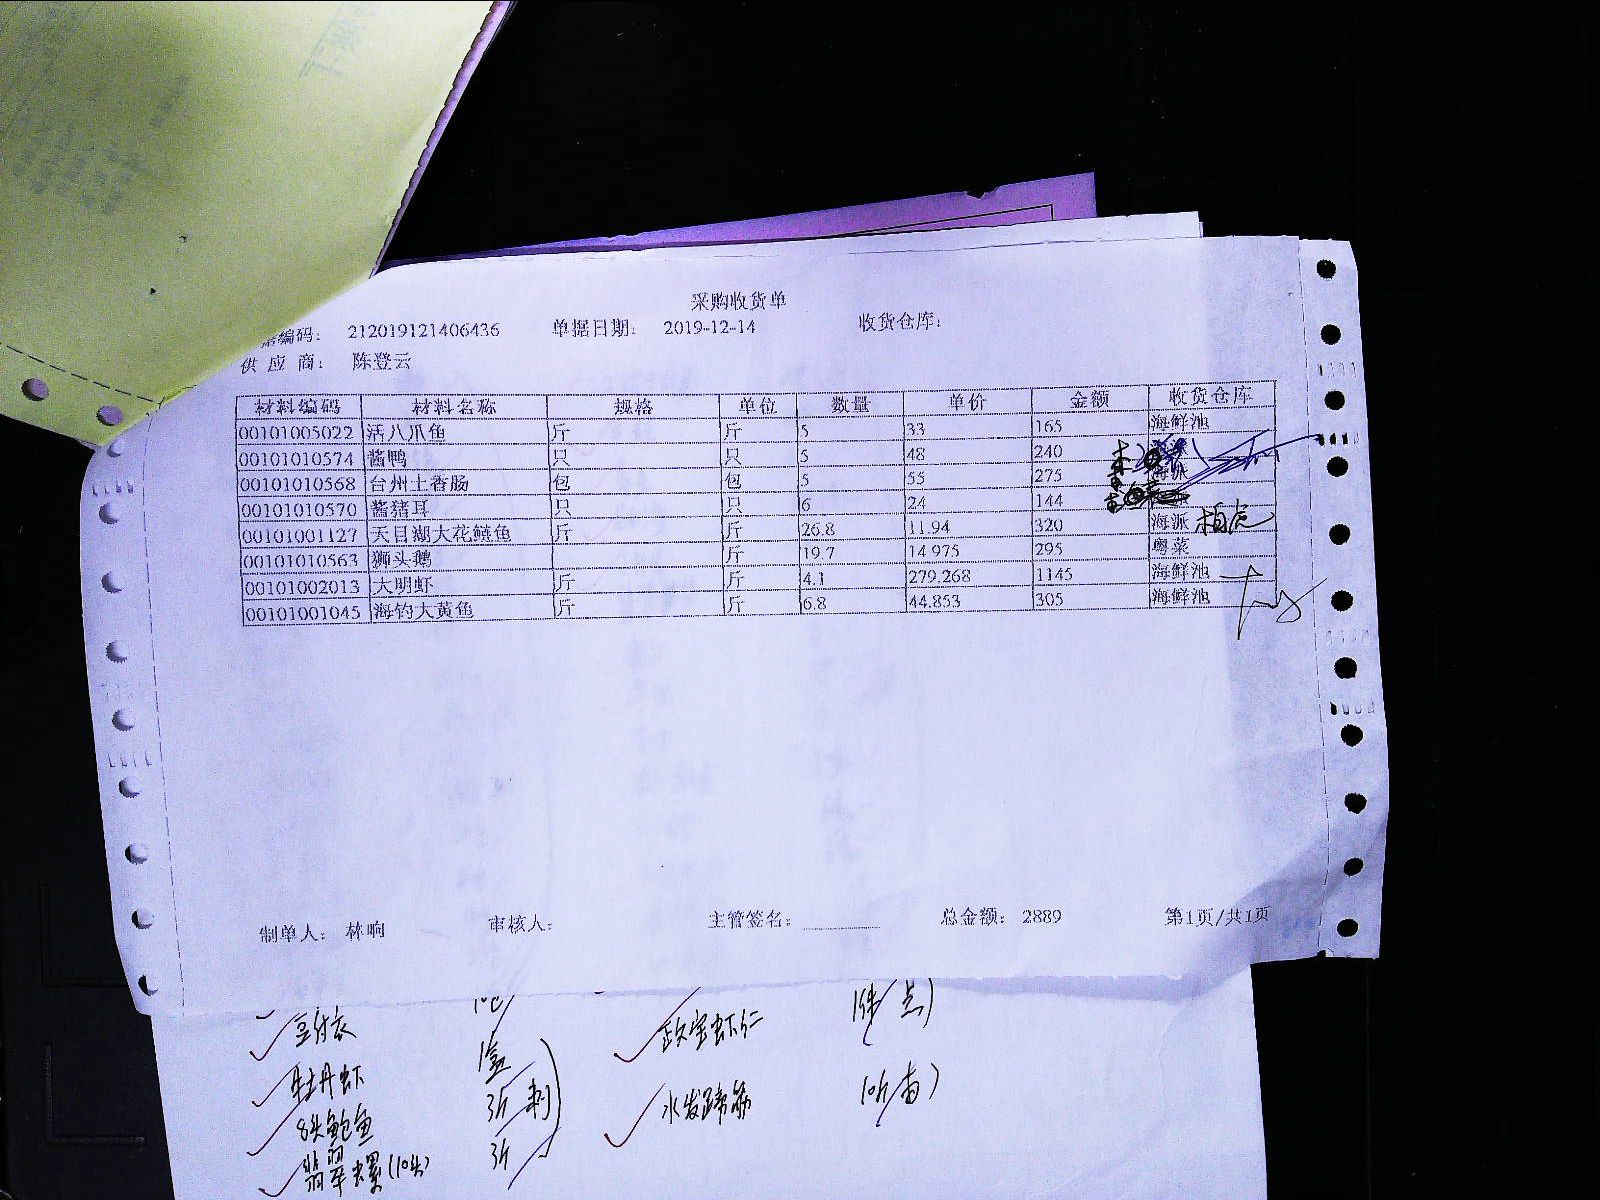 采购收货单
据编码: 212019121406436 单据日期: 2019-12-14 收货仓库:
供应商: 陈登云
材料编码 材料名称 规格 单位 数量 单价 金额 收货仓库
00101005022 活八爪鱼 斤 斤 5 33 165 海鲜池
00101010574 酱鸭 只 只 5 48 240
00101010568 台州土香肠 包 包 5 55 275 海派
00101010570 酱猪耳 只 只 6 24 144
00101001127 天目湖大花鲢鱼 斤 斤 26.8 11.94 320 海派
00101010563 狮头鹅 斤 19.7 14.975 295 粤菜
00101002013 大明虾 斤 斤 4.1 279.268 1145 海鲜池
00101001045 海钓大黄鱼 斤 斤 6.8 44.853 305 海鲜池
制单人: 林响 审核人: 主管签名: 总金额: 2889 第1页/共1页
豆付衣 1盒 虾仁
牡丹虾 3斤 刺 水发蹄筋 10斤
8头鲍鱼 3斤
翡翠螺(10头)